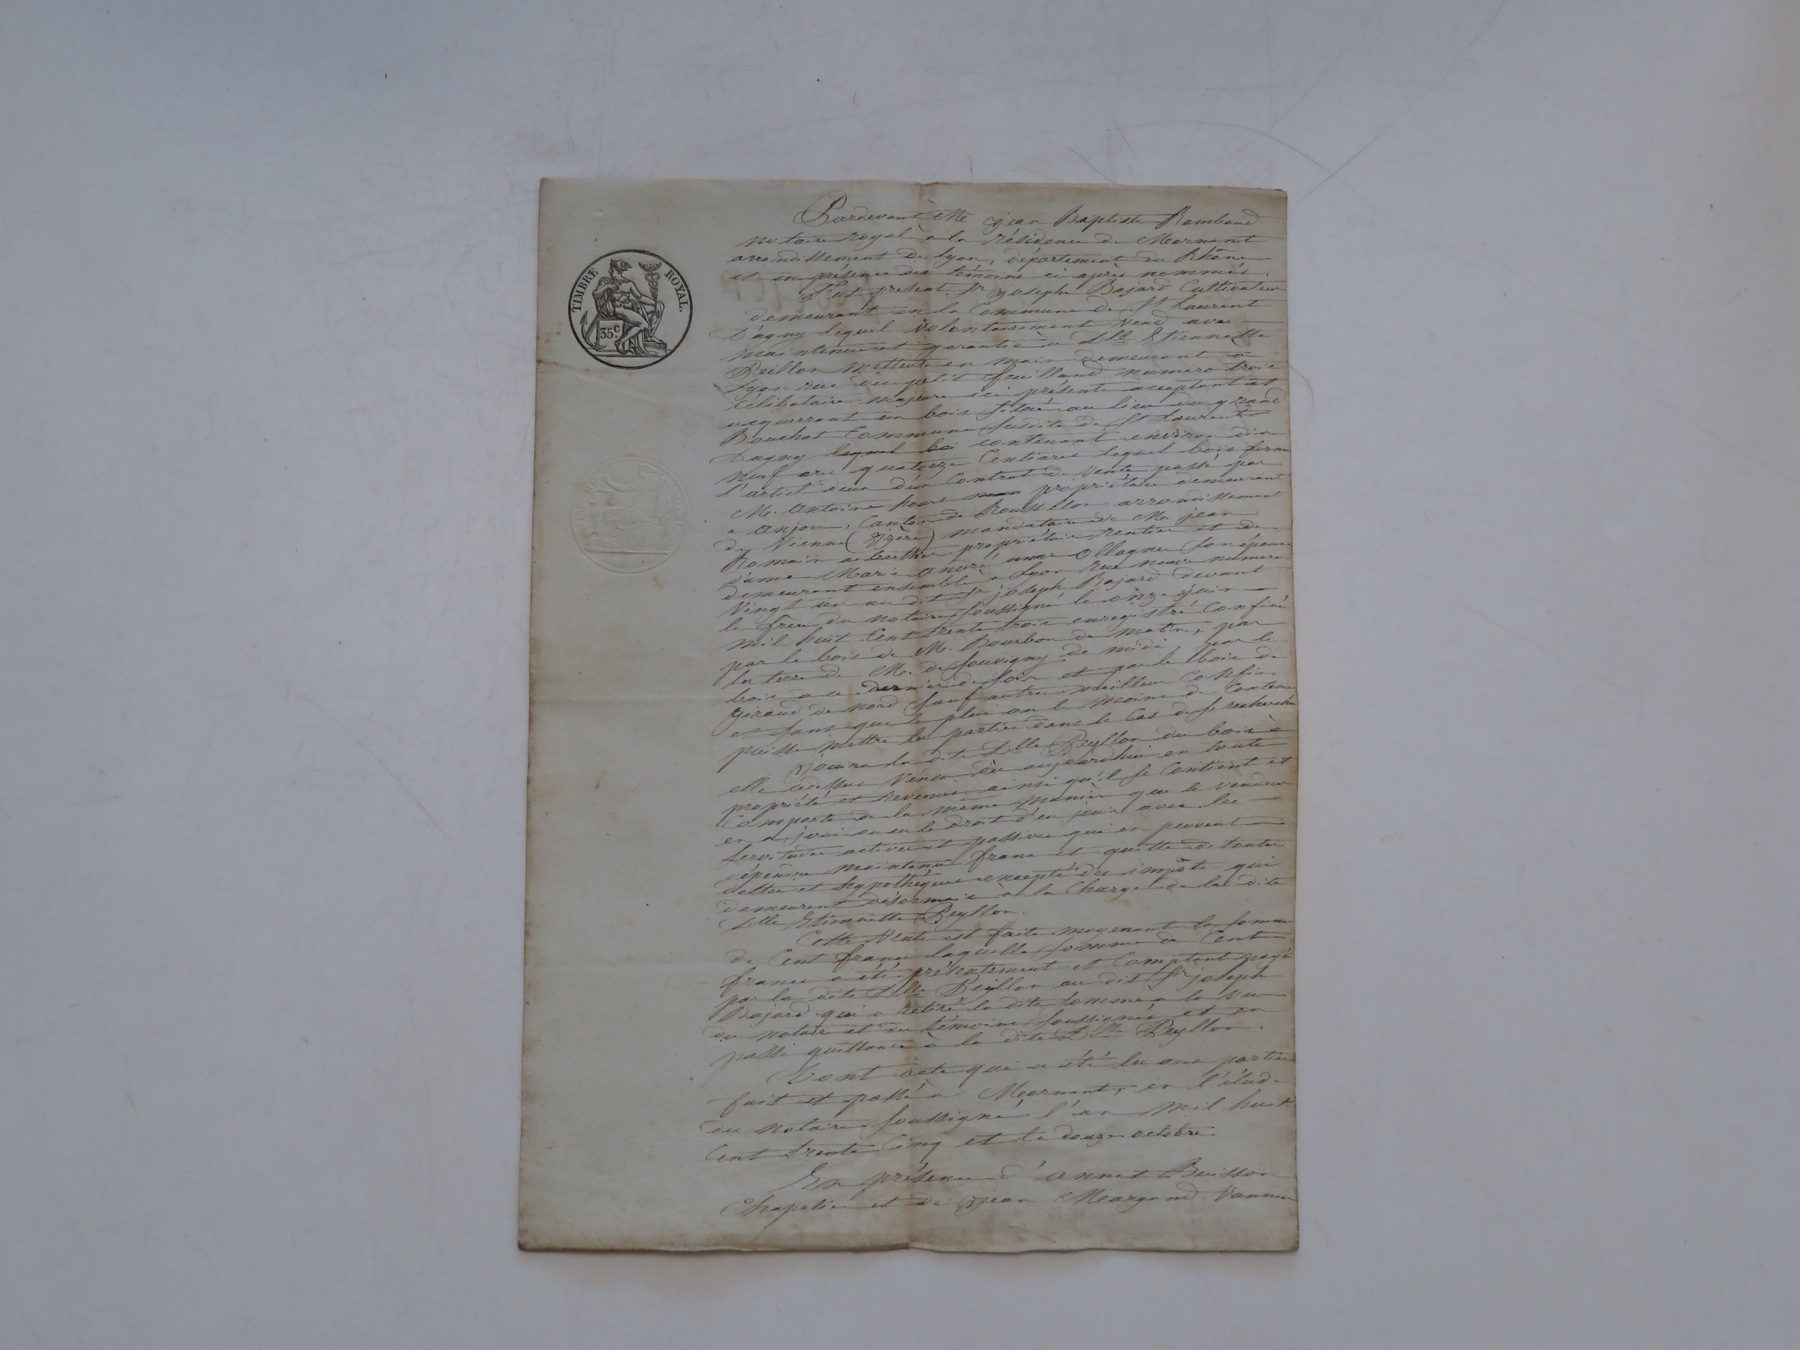 TIMBRE ROYAL.
35 c
Pardevant Me jean Baptiste Rambaud
notaire royal à la résidence de Mornant
arrondissement de Lyon, département du Rhône
et en présence des témoins ci après nommés.
Fut présent Sr joseph Bajard Cultivateur
demeurant en la Commune de St Laurent
D'agny lequel volontairement vend avec
maintenue et garantie à Dlle Etiennette
Peillon demeurant à
Lyon rue du petit feuilland numéro trois
célibataire majeure ici présente acceptant et
requerrant un bois situé au lieu du grand
Bouchat Commune susdite de St Laurent
Dagny lequel bois contenant environ dix
neuf ares quatorze Centiares lequel bois forme
l'article deux d'un Contrat de vente passé par
M. Antoine propriétaire demeurant
à anjou, Canton de Roussillon arrondissement
de Vienne (Isère) mandataire de M. jean
Romain propriétaire rentier et de
dame Marie anne Ollagnier son épouse
demeurant ensemble à Lyon rue neuve numéro
Vingt un au dit Sr joseph Bajard devant
le notaire soussigné le onze juin
mil huit Cent trente trois enregistré Confiné
par le bois de M. Bourbon de matin, par
la terre de M. de Souvigny de midi, par le
bois de ce dernier de soir et par le bois de
Giraud de nord sauf autres meilleurs Confins
et sans que le plus ou le moins de Contenue
puisse mettre les parties dans le Cas de se rechercher
jouira la dite Dlle Peyllon du bois à
elle cidessus vendu dès aujourdhui en toute
propriété et revenus ainsi qu'il se Contient et
Comporte de la même manière que le vendeur
en a joui ou eu le droit d'en jouir avec les
servitudes actives et passives qui en peuvent
dépendre maintenu franc et quitte de toutes
dettes et hypothèques excepté des impôts qui
demeurent désormais à la Charge de la dite
Dlle Etiennette Peyllon.
Cette Vente est faite moyenant la somme
de Cent francs laquelle somme de Cent
francs a été présentement et Comptant payé
par la dite Dlle Peyllon au dit Sr joseph
Bajard qui a retiré la dite somme à la vue
du notaire et des témoins soussignés et en
passe quittance à la dite Dlle Peyllon.
Dont acte qui a été lu aux parties
fait et passé à Mornant, en l'étude
du notaire soussigné l'an mil huit
Cent trente Cinq et le douze octobre
En présence d'annet Buisson
Chapelier et de jean Margand Vannier